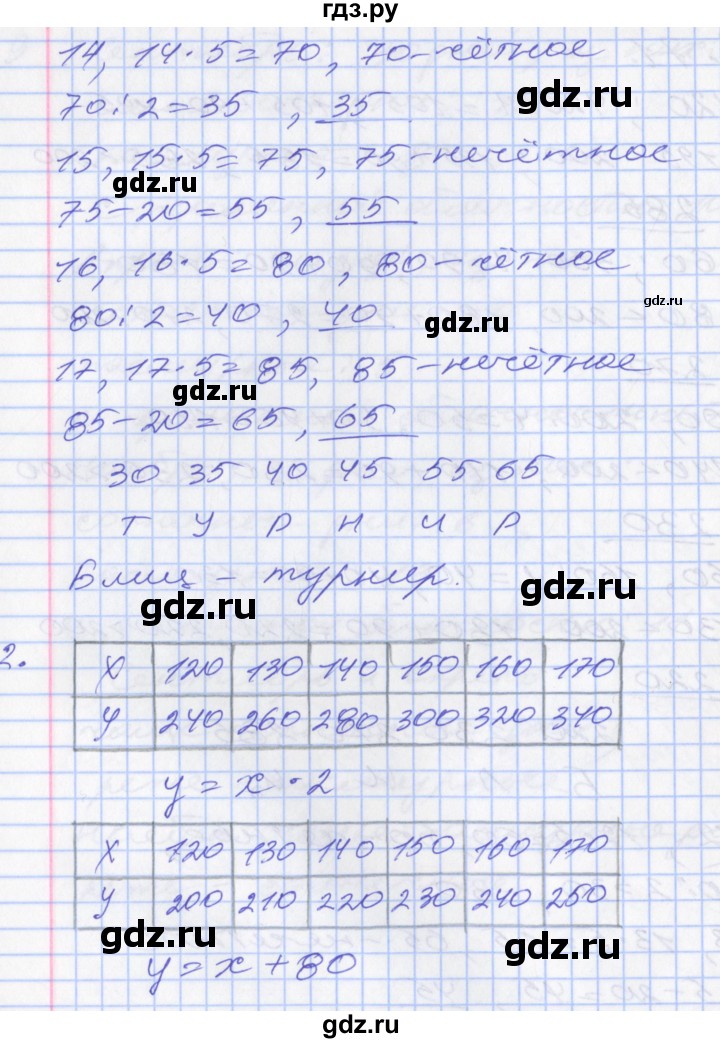 гдз.ру
14, 14·5=70, 70-чётное
70:2=35, 35
gdz.ru
15, 15·5=75, 75-нечётное
gdz.ru
75-20=55, 55
16, 16·5=80, 80-чётное
gdz.ru
80:2=40, 40
gdz.ru
17, 17·5=85, 85-нечётное
gdz.ru
85-20=65, 65
30 35 40 45 55 65
Т У Р Н И Р
Блиц - турнир.
gdz.ru gdz.ru
2.
X 120 130 140 150 160 170
y 240 260 280 300 320 340
y = x · 2
X 120 130 140 150 160 170
y 200 210 220 230 240 250
gdz.ru gdz.ru
y = x + 80
gdz.ru